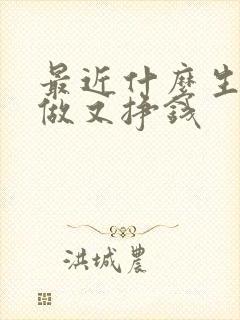 最近什麼生
做又挣钱
洪城農